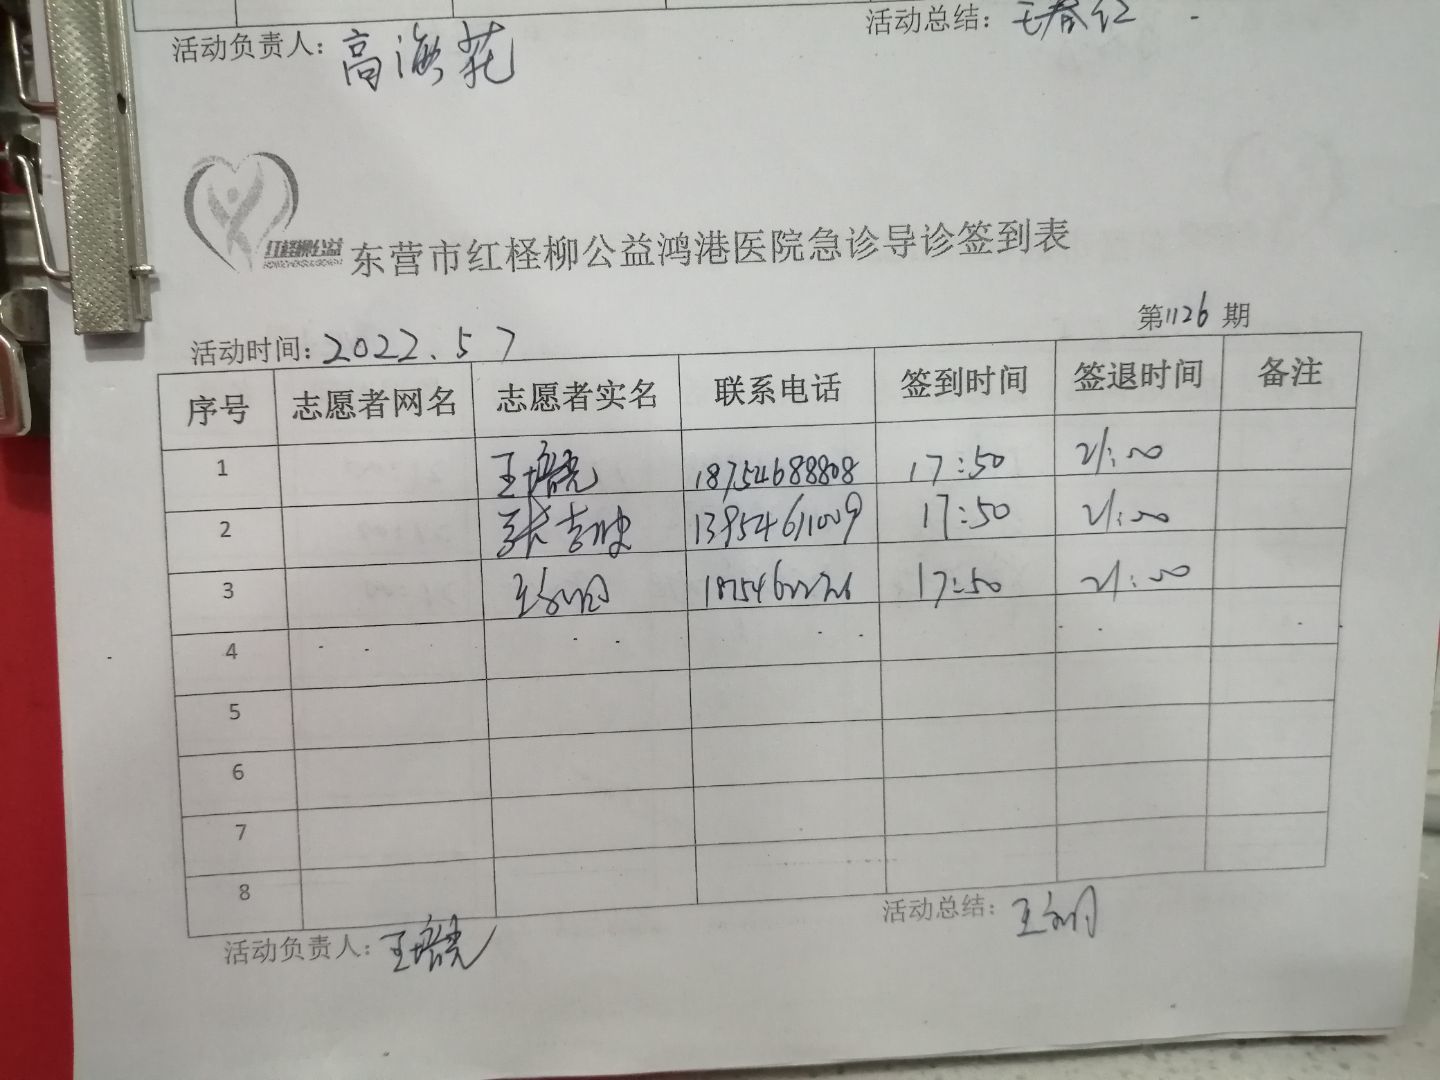 活动负责人: 高海花 活动总结: 王春红
红柽柳公益
东营市红柽柳公益鸿港医院急诊导诊签到表
活动时间: 2022.5 7 第1126期
序号 志愿者网名 志愿者实名 联系电话 签到时间 签退时间 备注
1 王培亮 18754688808 17:50 21:00
2 张吉 13954611009 17:50 21:00
3 王 17:50 21:00
4
5
6
7
8
活动负责人: 王培亮 活动总结: 王